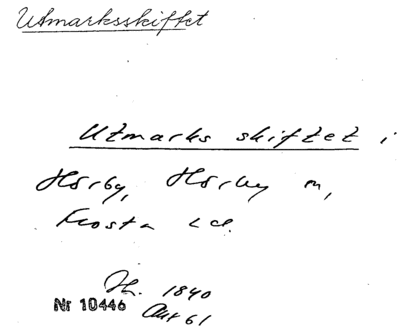 Utmarksskiftet
Utmarks skiftet i
Hörby, Hörby m,
Frosta hd.
Jb. 1840
Nr 10446
Akt 61